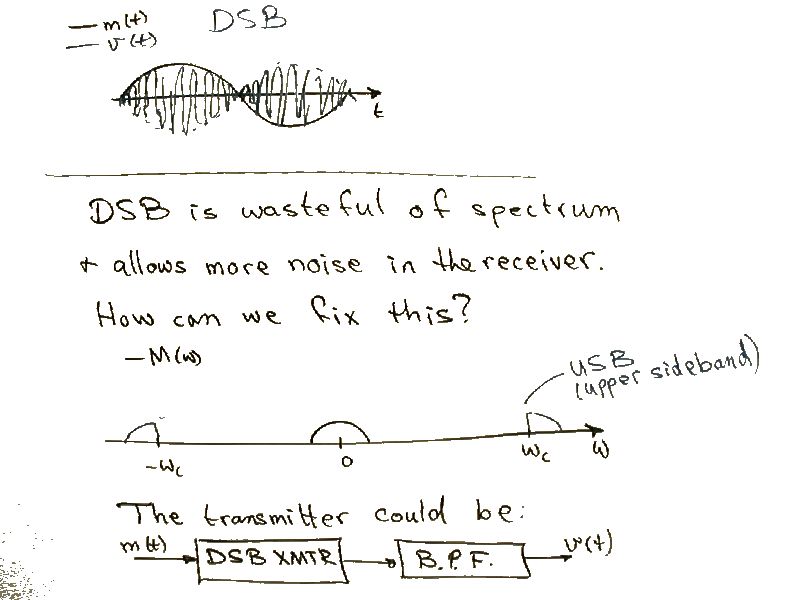 — m(t)
— v(t)
DSB
t
DSB is wasteful of spectrum
+ allows more noise in the receiver.
How can we fix this?
— M(ω)
USB
(upper sideband)
-ωc
0
ωc
ω
The transmitter could be:
m(t)
DSB XMTR
B.P.F.
v(t)